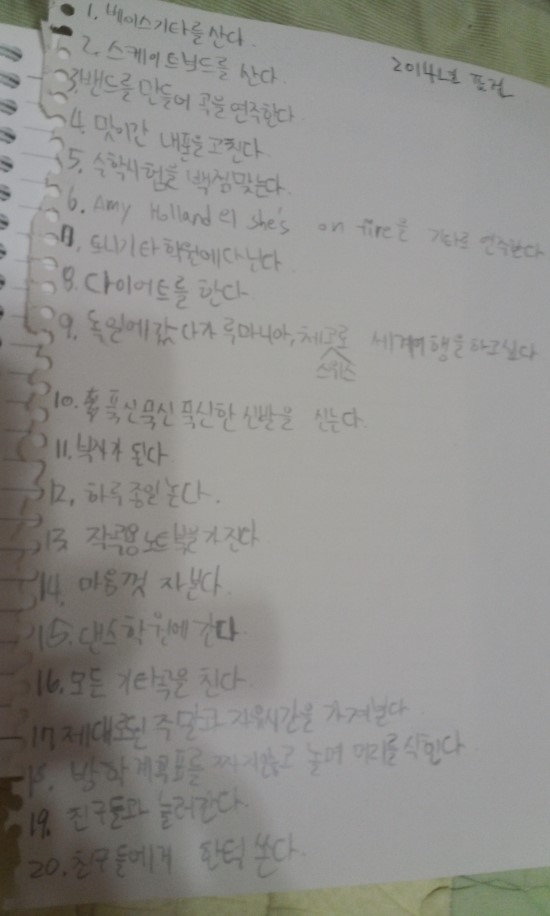 1. 베이스기타를 산다.
2014년 표현
2. 스케이트보드를 산다.
3. 밴드를 만들어 곡을 연주한다
4. 맛이간 내폰을 고친다.
5. 수학시험을 백점맞는다.
6. Amy Holland의 she's on fire을 기타로 연주한다
7. 도니기타학원에다닌다.
8. 다이어트를 한다
9. 독일에갔다가 루마니아, 체코로 세계여행을하고싶다
스위스
10. 푹신푹신푹신한 신발을 신는다.
11. 부자가 된다.
12. 하루종일논다.
13. 작곡용노트북을 가진다.
14. 마음껏 자본다.
15. 댄스학원에 간다
16. 모든 기타곡을 친다.
17. 제대로된 주말과 자유시간을 가져본다.
18. 방학계획표를 짜지않고 놀며 머리를식힌다.
19. 친구들과 놀러간다.
20. 친구들에게 한턱 쏜다.